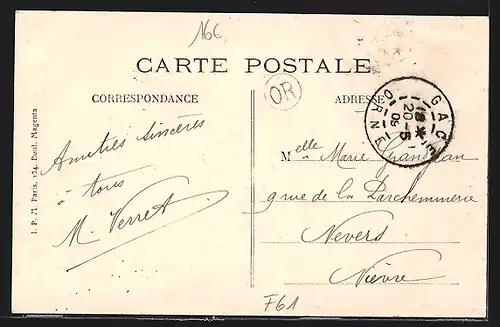 166
CARTE POSTALE
CORRESPONDANCE
OR
ADRESSE
GACÉ
20-5
09
ORNE
I. P. M. Paris, 134, Boul. Magenta
Amitiés sincères
à tous
M. Verret
Melle Marie
9 rue de la Parchemmerie
Nevers
Nièvre
F61